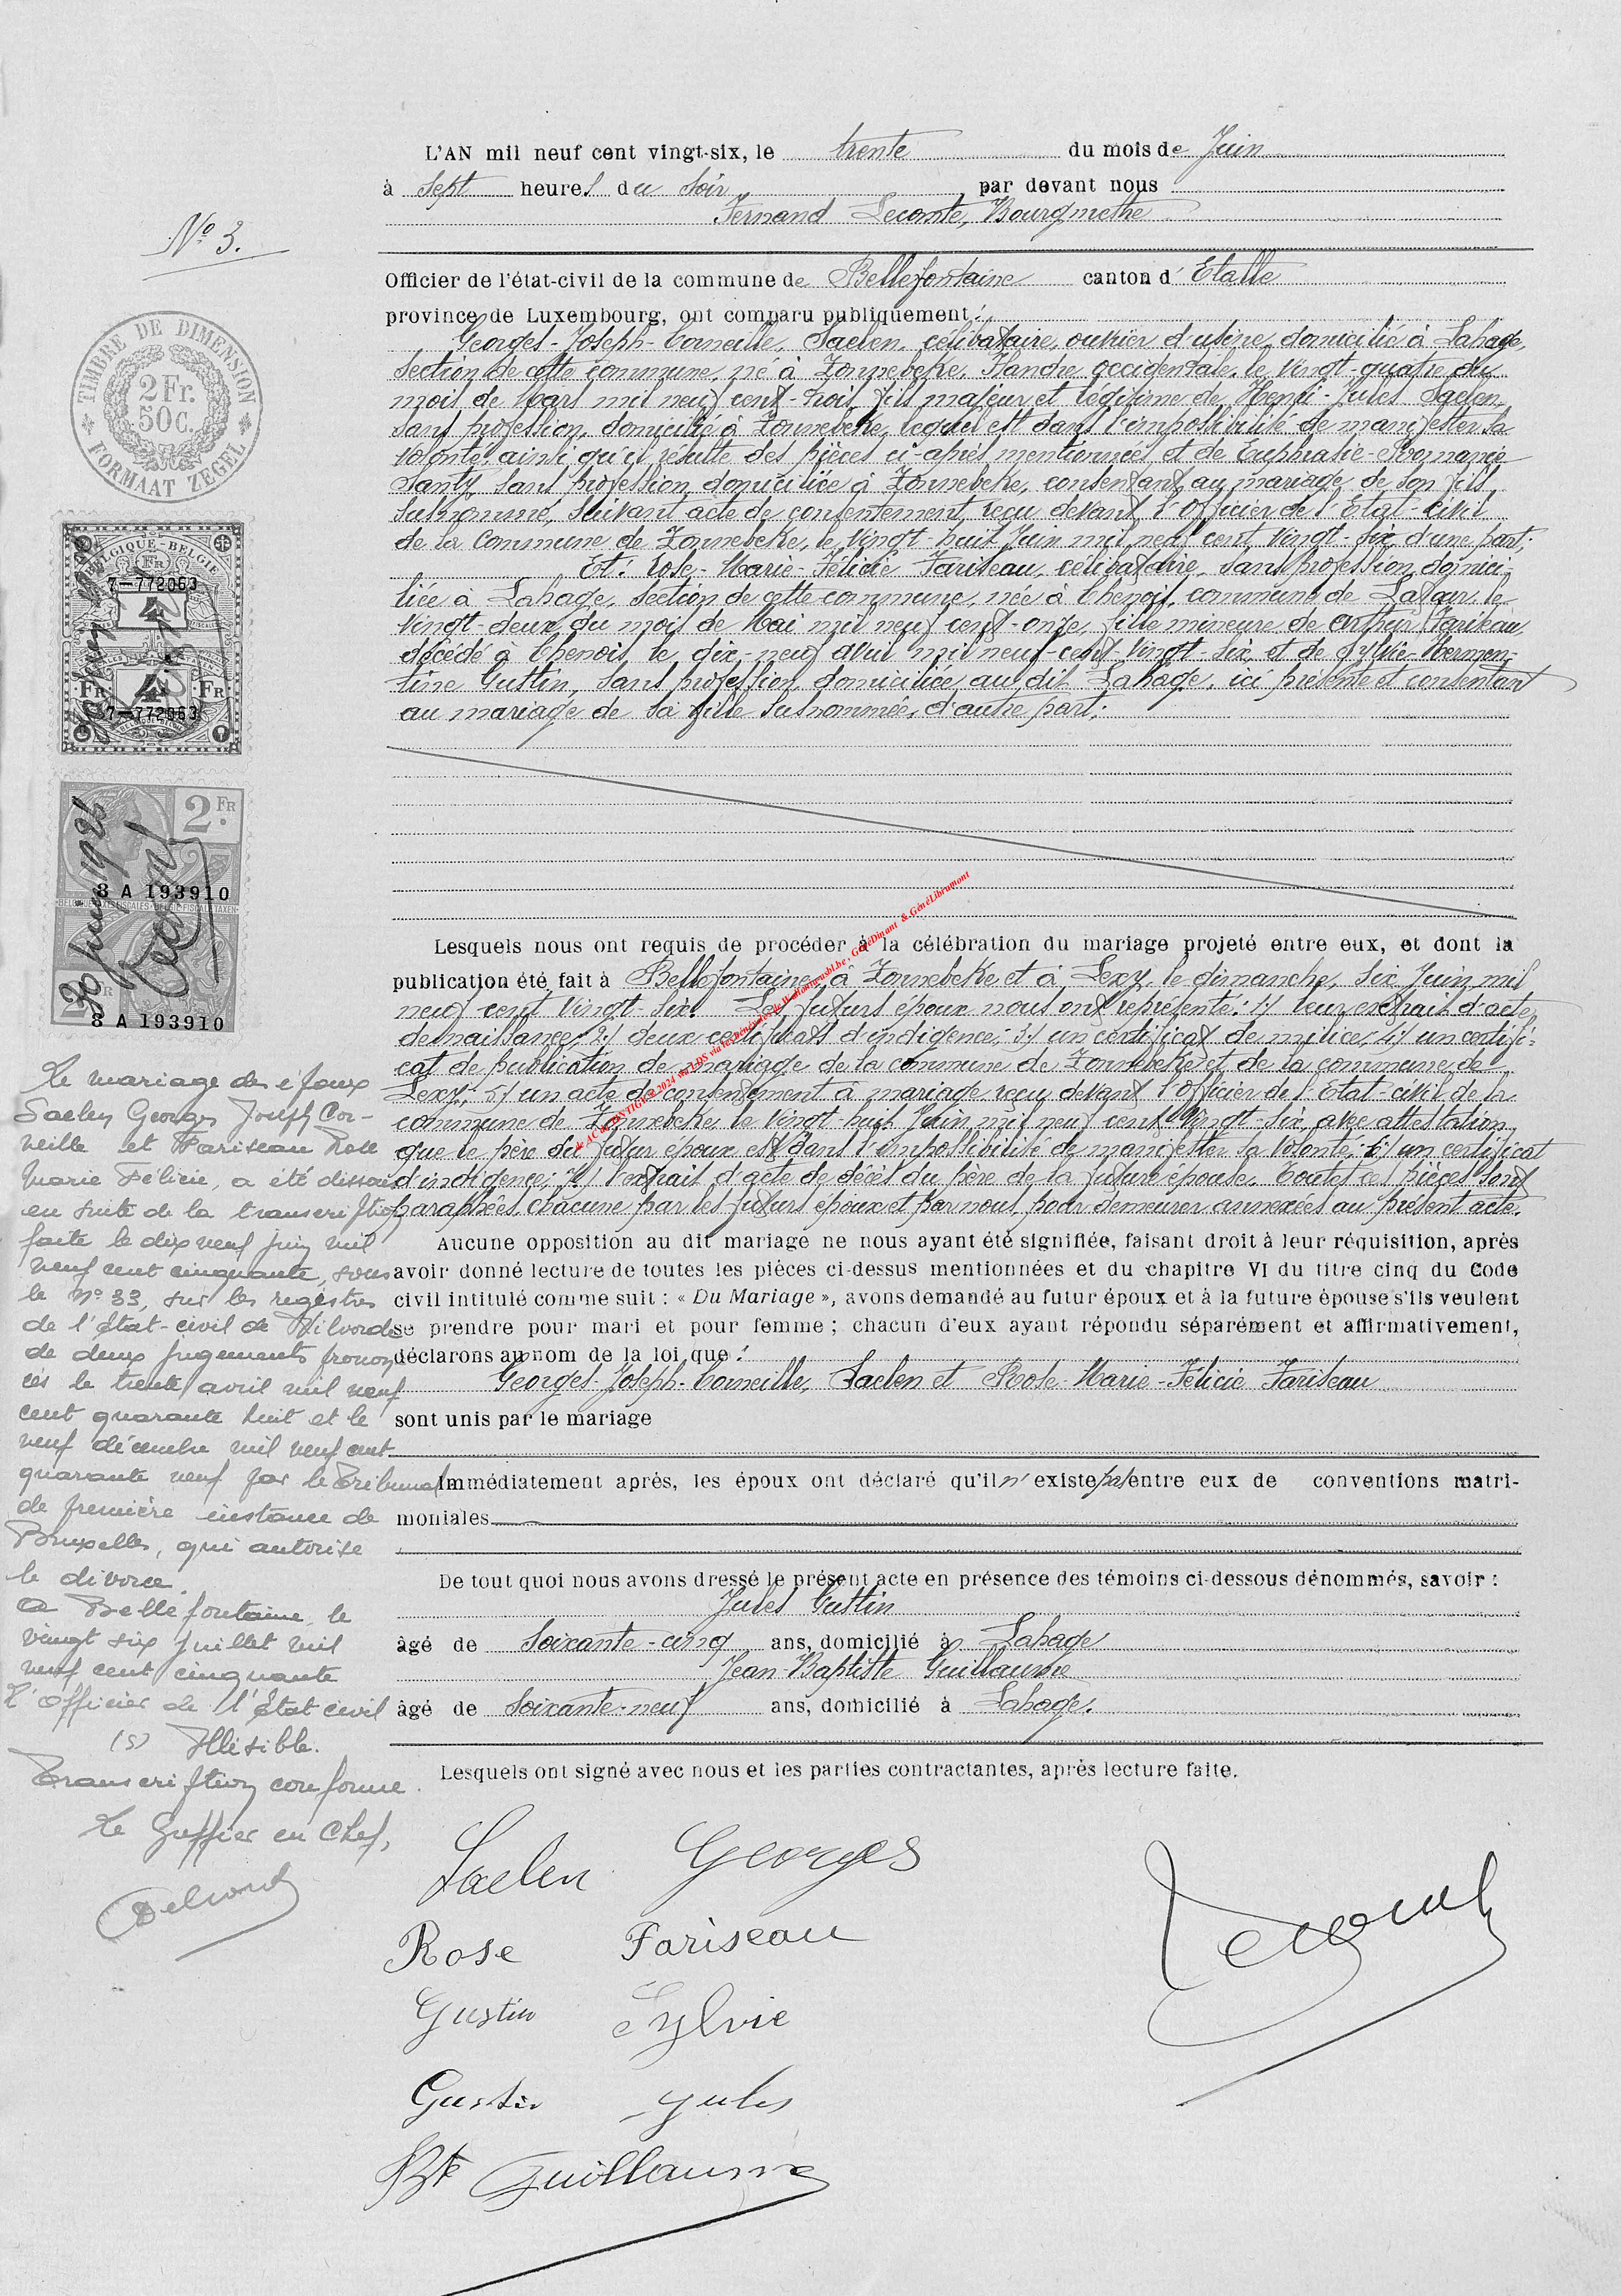 L'AN mil neuf cent vingt-six, le trente du mois de Juin
à Sept heures du Soir par devant nous
Fernand Lecomte, Bourgmestre
N° 3.
Officier de l'état-civil de la commune de Bellefontaine canton d'Etalle
province de Luxembourg, ont comparu publiquement :
Georges-Joseph-Corneille, Saelen, célibataire, ouvrier d'usine, domicilié à Lahage,
section de cette commune, né à Zonnebeke, Flandre occidentale, le vingt-quatre du
mois de Mars mil neuf cent-trois, fils majeur et légitime de Henri-Jules Saelen,
sans profession, domicilié à Zonnebeke, lequel est dans l'impossibilité de manifester sa
volonté, ainsi qu'il résulte des pièces ci-après mentionnées et de Euphrasie-Romanie
Santy, sans profession domiciliée à Zonnebeke, consentant au mariage de son fils
susnommé, suivant acte de consentement reçu devant l'Officier de l'Etat-civil
de la Commune de Zonnebeke, le vingt-huit Juin mil neuf cent vingt-six, d'une part;
Et : Rose-Marie-Félicie Fariseau, célibataire, sans profession, domici-
liée à Lahage, section de cette commune, née à Chenois, commune de Latour, le
vingt-deux du mois de Mai mil neuf cent-onze, fille mineure de Arthur Fariseau,
décédé à Chenois le dix-neuf avril mil neuf-cent-vingt-six et de Sylvie-Hermen-
tine Gustin, sans profession domiciliée au dit Lahage, ici présente et consentant
au mariage de sa fille susnommée, d'autre part;
Lesquels nous ont requis de procéder à la célébration du mariage projeté entre eux, et dont la
publication été fait à Bellefontaine, à Zonnebeke et à Lexy, le dimanche, six Juin mil
neuf-cent vingt-six. Les futurs époux nous ont représenté : 1) leur extrait d'acte
de naissance; 2) deux certificats d'indigence; 3) un certificat de milice; 4) un certifi-
cat de publication de mariage de la commune de Zonnebeke et de la commune de
Lexy; 5) un acte de consentement à mariage reçu devant l'Officier de l'Etat-civil de la
commune de Zonnebeke, le vingt-huit Juin mil neuf cent vingt-six, avec attestation
que le père du futur époux est dans l'impossibilité de manifester sa volonté; 6) un certificat
d'indigence; 7) l'extrait d'acte de décès du père de la future épouse. Toutes ces pièces sont
paraphées, chacune par les futurs époux et par nous pour demeurer annexées au présent acte.
Aucune opposition au dit mariage ne nous ayant été signifiée, faisant droit à leur réquisition, après
avoir donné lecture de toutes les pièces ci-dessus mentionnées et du chapitre VI du titre cinq du Code
civil intitulé comme suit : « Du Mariage », avons demandé au futur époux et à la future épouse s'ils veulent
se prendre pour mari et pour femme ; chacun d'eux ayant répondu séparément et affirmativement,
déclarons au nom de la loi, que :
Georges-Joseph-Corneille, Saelen et Rose-Marie-Félicie Fariseau
sont unis par le mariage
Immédiatement après, les époux ont déclaré qu'il n'existe pas entre eux de conventions matri-
moniales
De tout quoi nous avons dressé le présent acte en présence des témoins ci-dessous dénommés, savoir :
Jules Gustin
âgé de Soixante-cinq ans, domicilié à Lahage
Jean-Baptiste Guillaume
âgé de Soixante-neuf ans, domicilié à Lahage.
Lesquels ont signé avec nous et les parties contractantes, après lecture faite.
Saelen Georges
Rose Fariseau
Gustin Sylvie
Gustin Jules
Bte Guillaume
Lecomte
TIMBRE DE DIMENSION
2 Fr.
50 C.
FORMAAT ZEGEL
BELGIQUE-BELGIE
FR
7-772063
4
4
FR FR
7-772063
30 juin 1926
2 FR
8 A 193910
8 A 193910
30 juin 1926
Lecomte
Le mariage des époux
Saelen Georges Joseph Cor-
neille et Fariseau Rose
Marie Félicie, a été dissous
en suite de la transcription
faite le dix neuf juin mil
neuf cent cinquante, sous
le N° 33, sur les registres
de l'état-civil de Vilvorde
de deux jugements pronon-
cés le trente avril mil neuf
cent quarante huit et le
neuf décembre mil neuf cent
quarante neuf par le Tribunal
de première instance de
Bruxelles, qui autorise
le divorce.
A Bellefontaine, le
vingt six juillet mil
neuf cent cinquante
L'officier de l'état civil
(s) Illisible.
Transcription conforme.
Le Greffier en Chef,